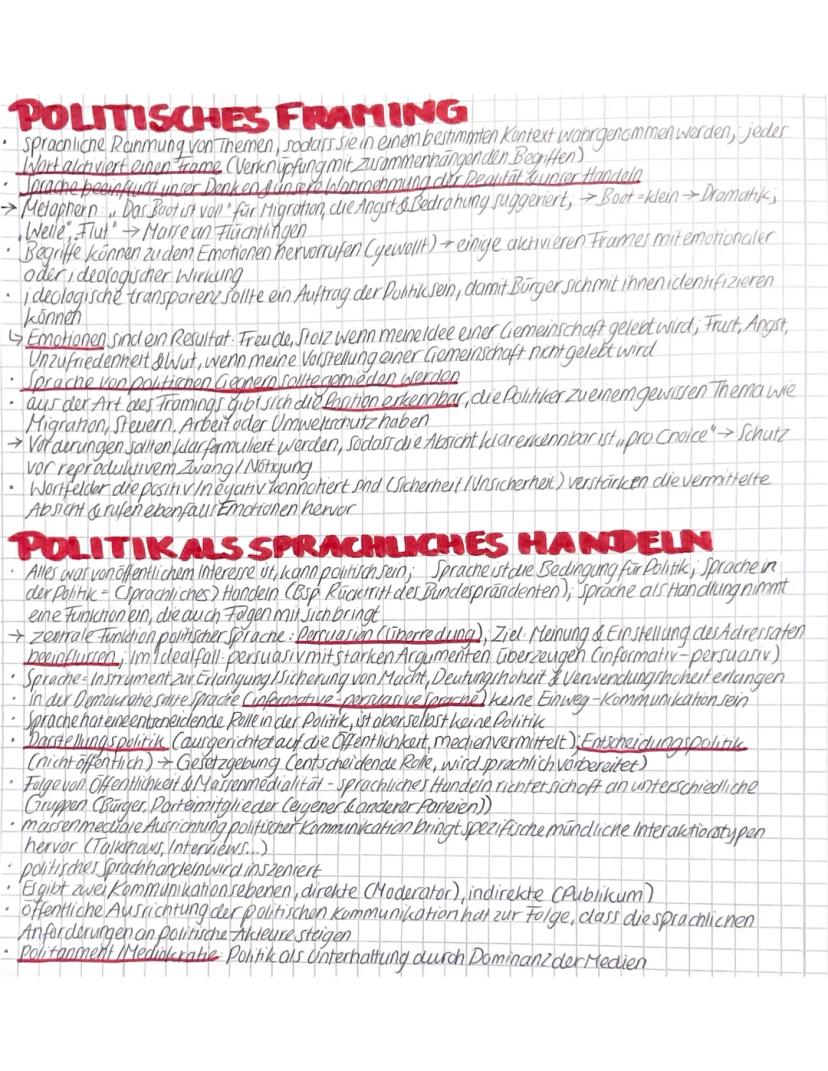 POLITISCHES FRAMING
· sprachliche Rahmung von Themen, sodass sie in einem bestimmten Kontext wahrgenommen werden, jedes
Wort aktiviert einen Frame (Verknüpfung mit zusammenhängenden Begriffen)
· Sprache beeinflusst unser Denken & unsere Wahrnehmung der Realität & unser Handeln
→ Metaphern: "Das Boot ist voll" für Migration, die Angst & Bedrohung suggeriert, → Boot = klein → Dramatik;
"Welle", "Flut" → Masse an Flüchtlingen
· Begriffe können zudem Emotionen hervorrufen (gewollt) → einige aktivieren Frames mit emotionaler
oder ideologischer Wirkung
· ideologische transparenz sollte ein Auftrag der Politik sein, damit Bürger sich mit ihnen identifizieren
können
↳ Emotionen sind ein Resultat: Freude, Stolz wenn meine Idee einer Gemeinschaft gelebt wird; Frust, Angst,
Unzufriedenheit & Wut, wenn meine Vorstellung einer Gemeinschaft nicht gelebt wird
· Sprache von politischen Gegnern sollte gemieden werden
· aus der Art des Framings gibt sich die Position erkennbar, die Politiker zu einem gewissen Thema wie
Migration, Steuern, Arbeit oder Umweltschutz haben
→ Vorderungen sollten klar formuliert werden, sodass die Absicht klar erkennbar ist "pro Choice" → Schutz
vor reproduktivem Zwang / Nötigung
· Wortfelder die positiv / negativ konnotiert sind (Sicherheit / Unsicherheit) verstärken die vermittelte
Absicht & rufen ebenfalls Emotionen hervor
POLITIK ALS SPRACHLICHES HANDELN
· Alles was von öffentlichem Interesse ist, kann politisch sein; Sprache ist die Bedingung für Politik; Sprache in
der Politik = (sprachliches) Handeln (Bsp. Rücktritt des Bundespräsidenten); Sprache als Handlung nimmt
eine Funktion ein, die auch Folgen mit sich bringt
→ zentrale Funktion politischer Sprache: Persuasion (Überredung), Ziel: Meinung & Einstellung des Adressaten
beeinflussen; im Idealfall: persuasiv mit starken Argumenten überzeugen (informativ-persuasiv)
· Sprache = Instrument zur Erlangung / Sicherung von Macht, Deutungshoheit & Verwendungshoheit erlangen
· In der Demokratie sollte Sprache (informative-persuasive Sprache) keine Einweg-Kommunikation sein
· Sprache hat eine entscheidende Rolle in der Politik, ist aber selbst keine Politik
· Darstellungspolitik (ausgerichtet auf die Öffentlichkeit, medienvermittelt); Entscheidungspolitik
(nicht öffentlich) → Gesetzgebung (entscheidende Rolle, wird sprachlich vorbereitet)
· Folge von Öffentlichkeit & Massenmedialität - sprachliches Handeln richtet sich oft an unterschiedliche
Gruppen (Bürger, Parteimitglieder (eigener & anderer Parteien))
· massenmediale Ausrichtung politischer Kommunikation bringt spezifische mündliche Interaktionstypen
hervor (Talkshows, Interviews...)
· politisches Sprachhandeln wird inszeniert
· Es gibt zwei Kommunikationsebenen, direkte (Moderator), indirekte (Publikum)
· öffentliche Ausrichtung der politischen Kommunikation hat zur Folge, dass die sprachlichen
Anforderungen an politische Akteure steigen
· Politainment / Mediokratie: Politik als Unterhaltung durch Dominanz der Medien